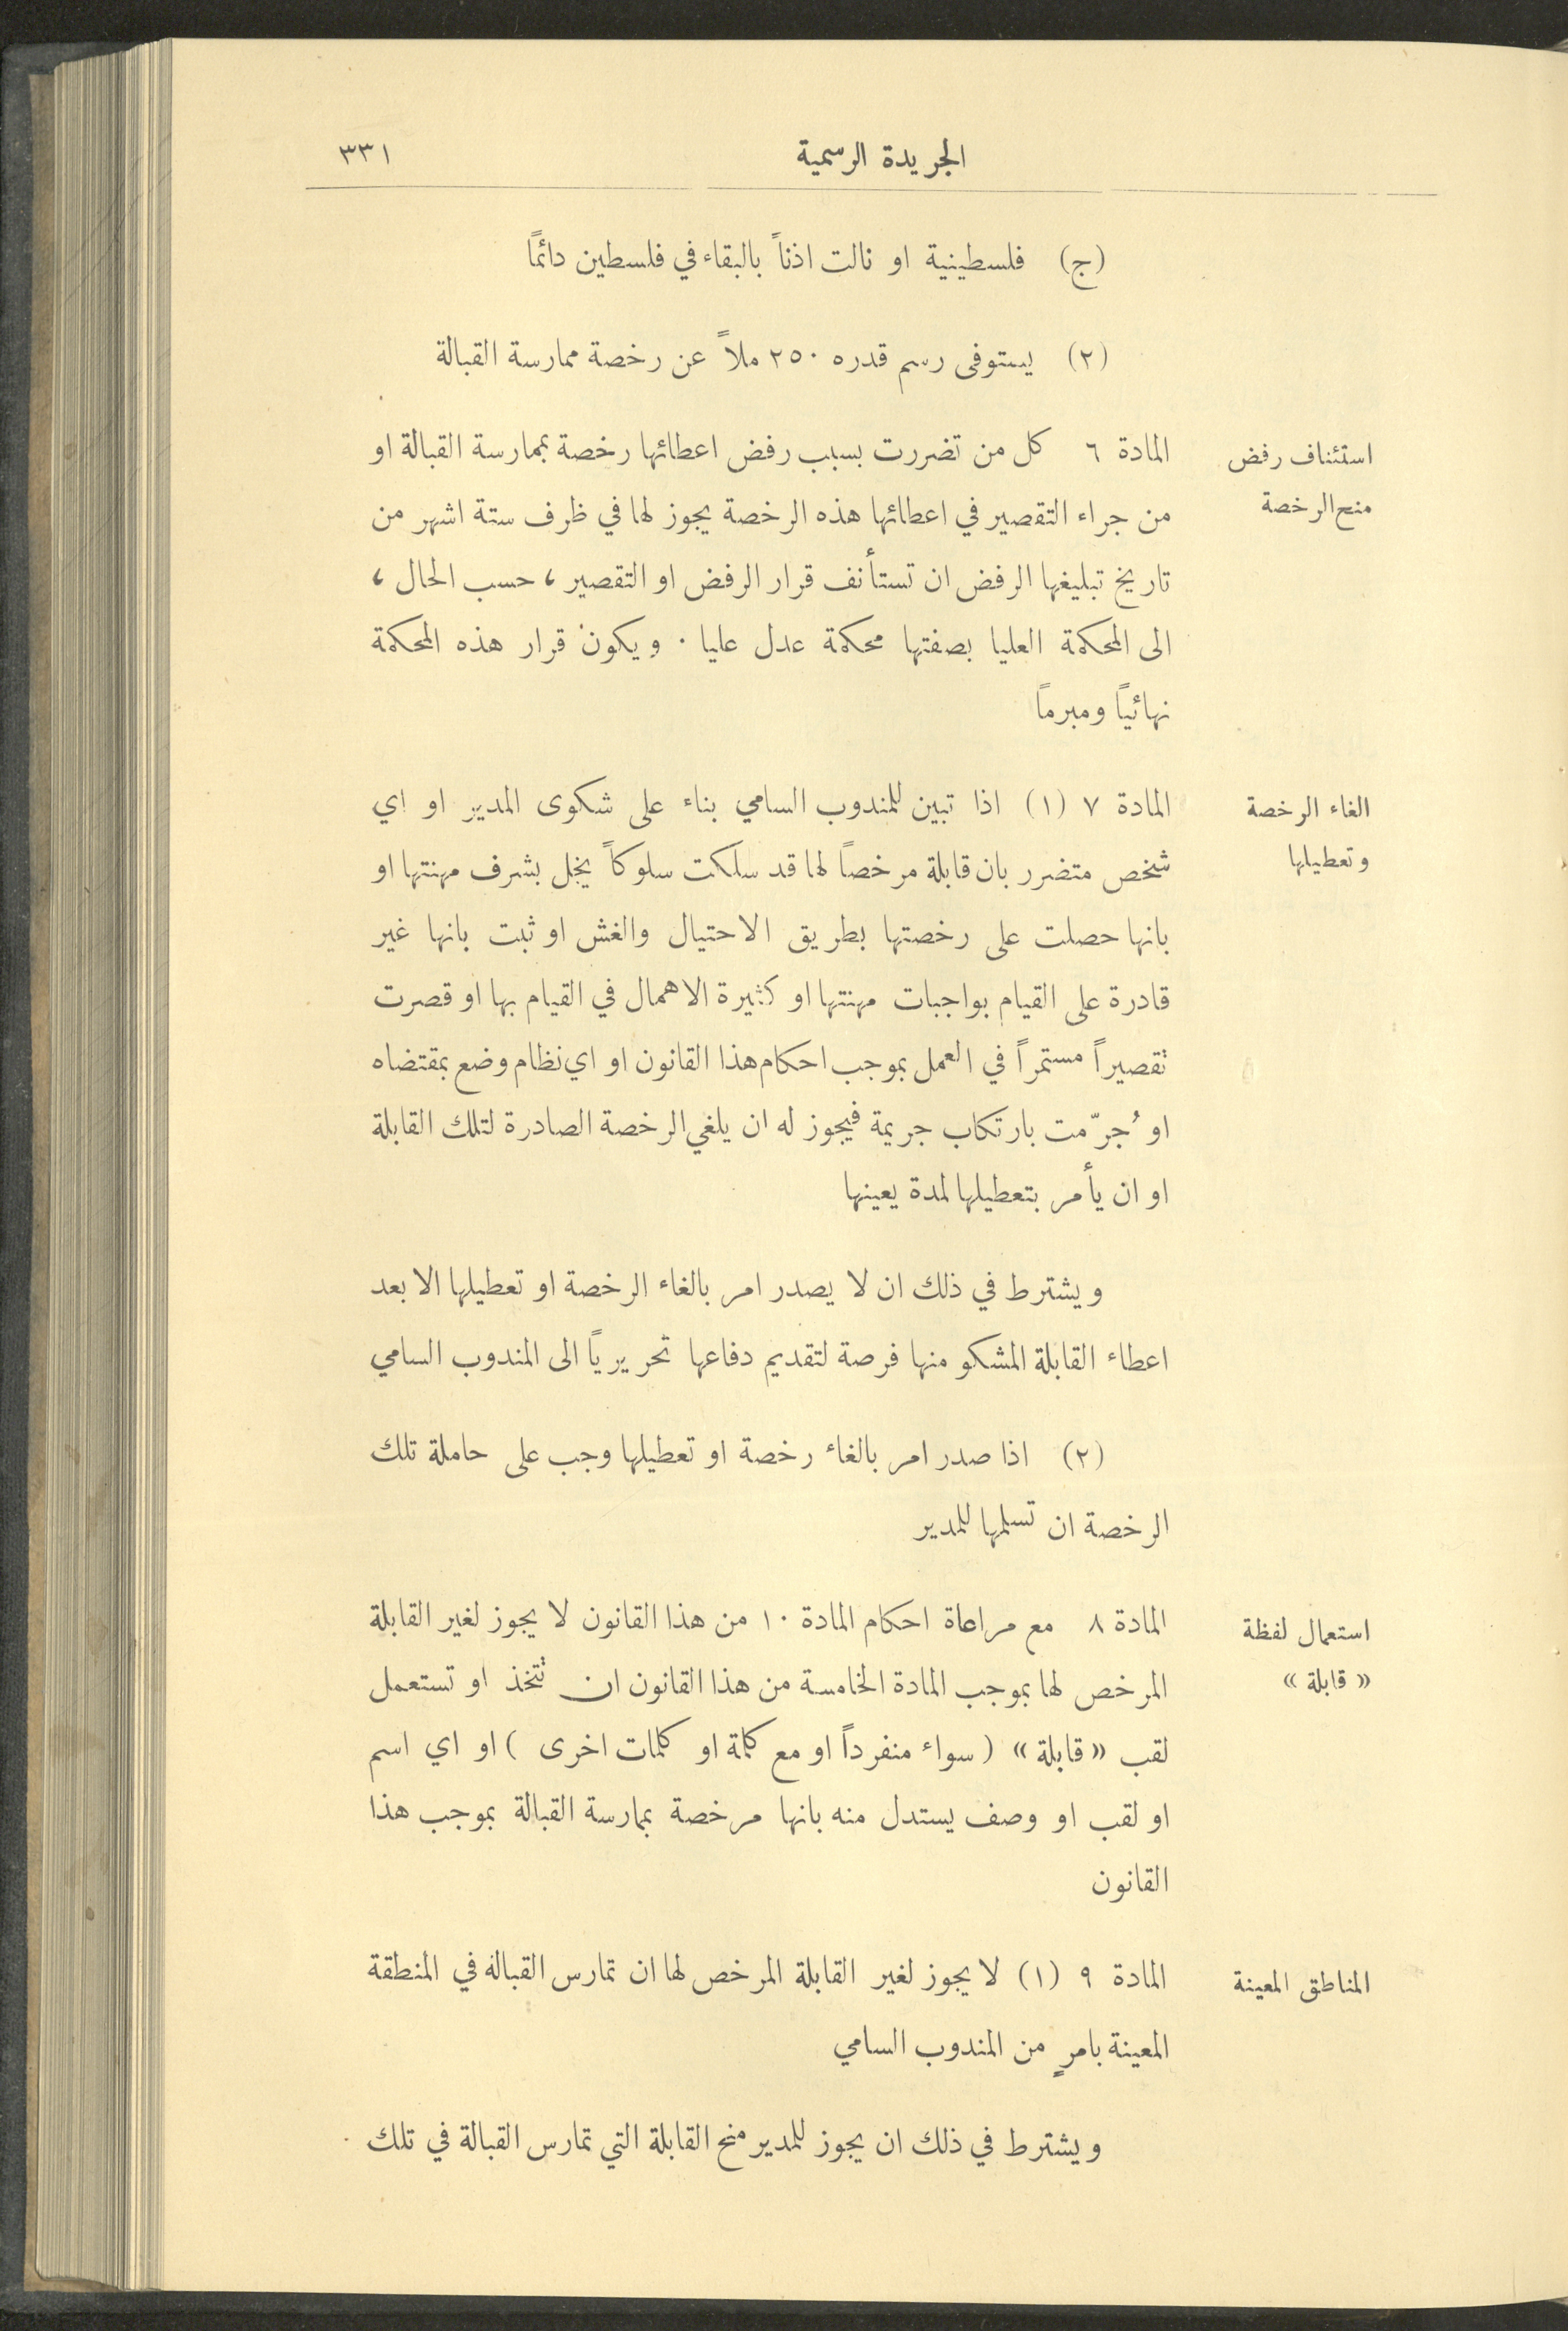 الجريدة الرسمية ٣٣١
(ج) فلسطينية او نالت اذناً بالبقاء في فلسطين دائماً
(٢) يستوفى رسم قدره ٢٥٠ ملاً عن رخصة ممارسة القبالة
استئناف رفض
منح الرخصة
المادة ٦ كل من تضررت بسبب رفض اعطائها رخصة بممارسة القبالة او
من جراء التقصير في اعطائها هذه الرخصة يجوز لها في ظرف ستة اشهر من
تاريخ تبليغها الرفض ان تستأنف قرار الرفض او التقصير، حسب الحال،
الى المحكمة العليا بصفتها محكمة عدل عليا. ويكون قرار هذه المحكمة
نهائياً ومبرماً
الغاء الرخصة
وتعطيلها
المادة ٧ (١) اذا تبين للمندوب السامي بناء على شكوى المدير او اي
شخص متضرر بان قابلة مرخصاً لها قد سلكت سلوكاً يخل بشرف مهنتها او
بانها حصلت على رخصتها بطريق الاحتيال والغش او ثبت بانها غير
قادرة على القيام بواجبات مهنتها او كثيرة الاهمال في القيام بها او قصرت
تقصيراً مستمراً في العمل بموجب احكام هذا القانون او اي نظام وضع بمقتضاه
او جُرّمت بارتكاب جريمة فيجوز له ان يلغي الرخصة الصادرة لتلك القابلة
او ان يأمر بتعطيلها لمدة يعينها
ويشترط في ذلك ان لا يصدر امر بالغاء الرخصة او تعطيلها الا بعد
اعطاء القابلة المشكو منها فرصة لتقديم دفاعها تحريرياً الى المندوب السامي
(٢) اذا صدر امر بالغاء رخصة او تعطيلها وجب على حاملة تلك
الرخصة ان تسلمها للمدير
استعمال لفظة
«قابلة»
المادة ٨ مع مراعاة احكام المادة ١٠ من هذا القانون لا يجوز لغير القابلة
المرخص لها بموجب المادة الخامسة من هذا القانون ان تتخذ او تستعمل
لقب «قابلة» (سواء منفرداً او مع كلمة او كلمات اخرى) او اي اسم
او لقب او وصف يستدل منه بانها مرخصة بممارسة القبالة بموجب هذا
القانون
المناطق المعينة
المادة ٩ (١) لا يجوز لغير القابلة المرخص لها ان تمارس القبالة في المنطقة
المعينة بامرٍ من المندوب السامي
ويشترط في ذلك ان يجوز للمدير منح القابلة التي تمارس القبالة في تلك